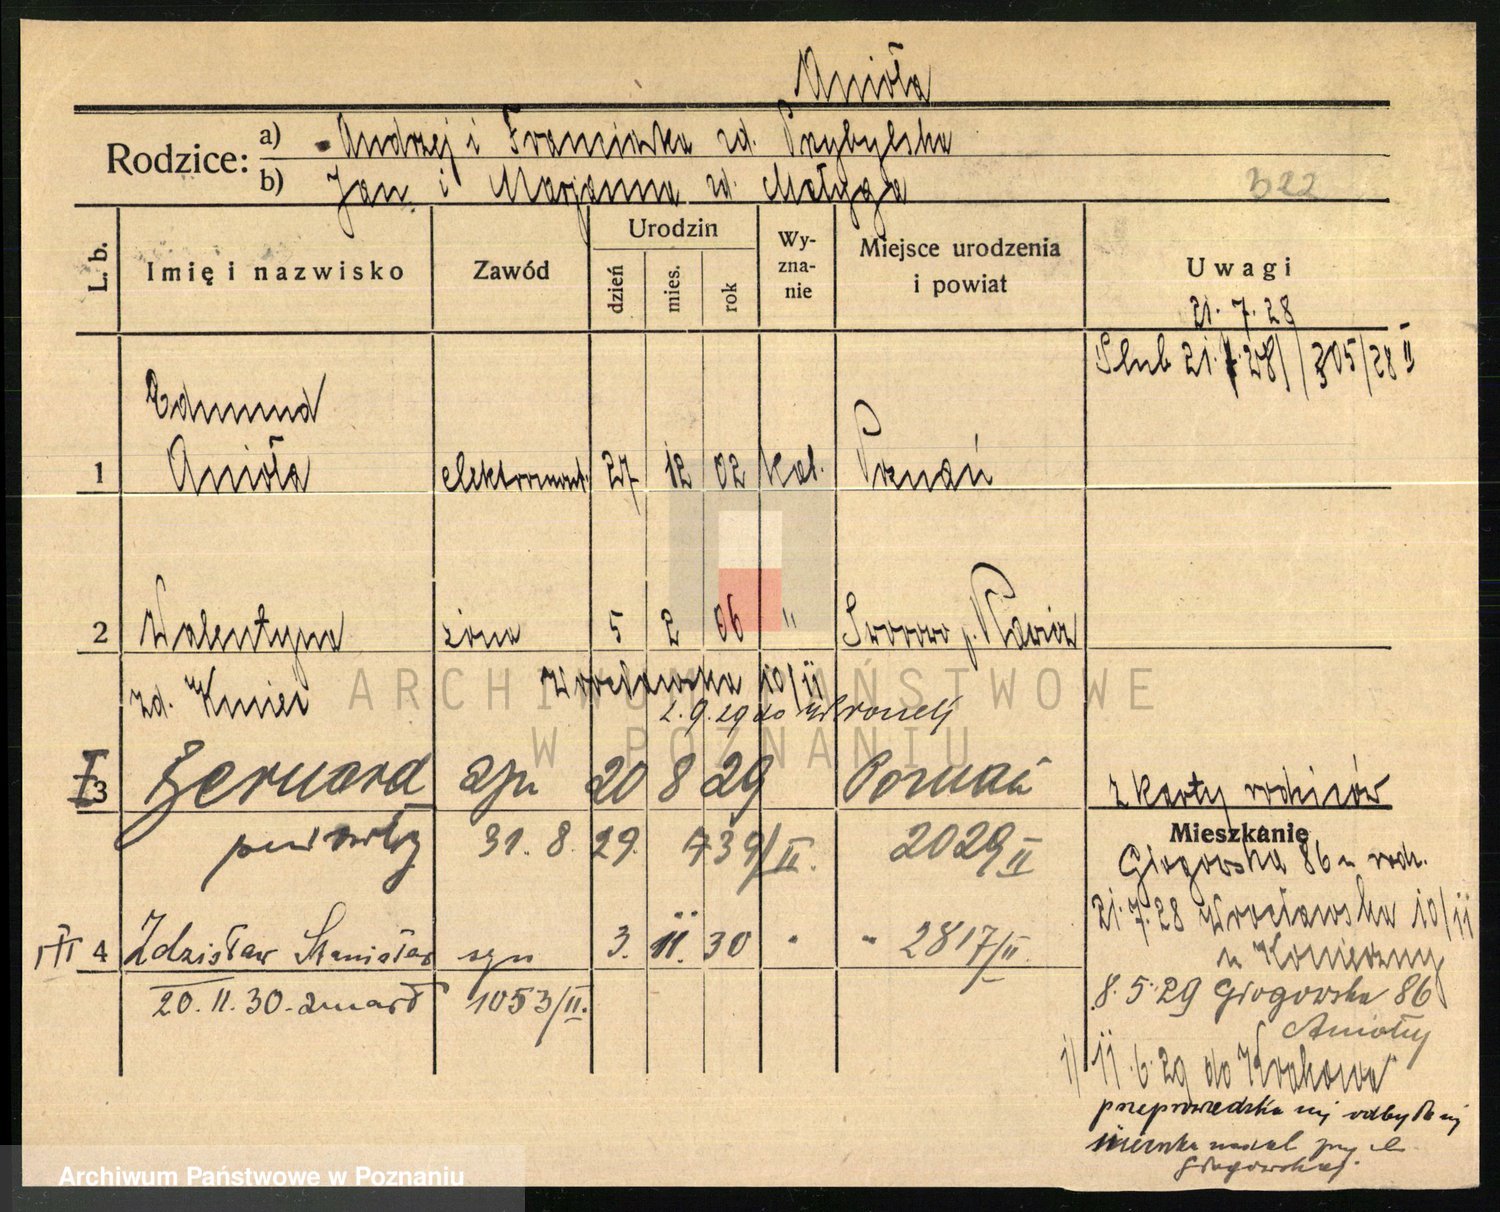 Anioła
Rodzice: a) Andrzej i Franciszka zd. Przybylska
b) Jan i Marjanna zd. Małyga
322
L. b. Imię i nazwisko Zawód Urodzin dzień mies. rok Wy-zna-nie Miejsce urodzenia i powiat Uwagi
21. 7. 28
Slub 21.7.28 // 305/28 II
Edmund
1 Anioła elektromont. 27 12 02 kat. Poznań
2 Walentyna żona 5 2 06 " Sworowo p. Rawicz
zd. Kmieć Wrocławska 10/11
2.9.29 do Wronek
I 3 Bernard syn 20 8 29 Poznań z karty rodziców
31. 8. 29. 739/II. 2029/II
Mieszkanie
Głogowska 86 u rodz.
21.7.28 Wrocławska 10/11
u Konieczny
III 4 Zdzisław Stanisław syn 3. 11. 30 " " 2817/II.
20. 11. 30. zmarł 1053/II.
8. 5. 29 Głogowska 86
Anioły
1/ 11. 6. 29 do Krakowa
przeprowadzka nij odbyła nij
mieszka nadal przy ul.
Głogowskiej.
ARCHIWUM PAŃSTWOWE
W POZNANIU
Archiwum Państwowe w Poznaniu